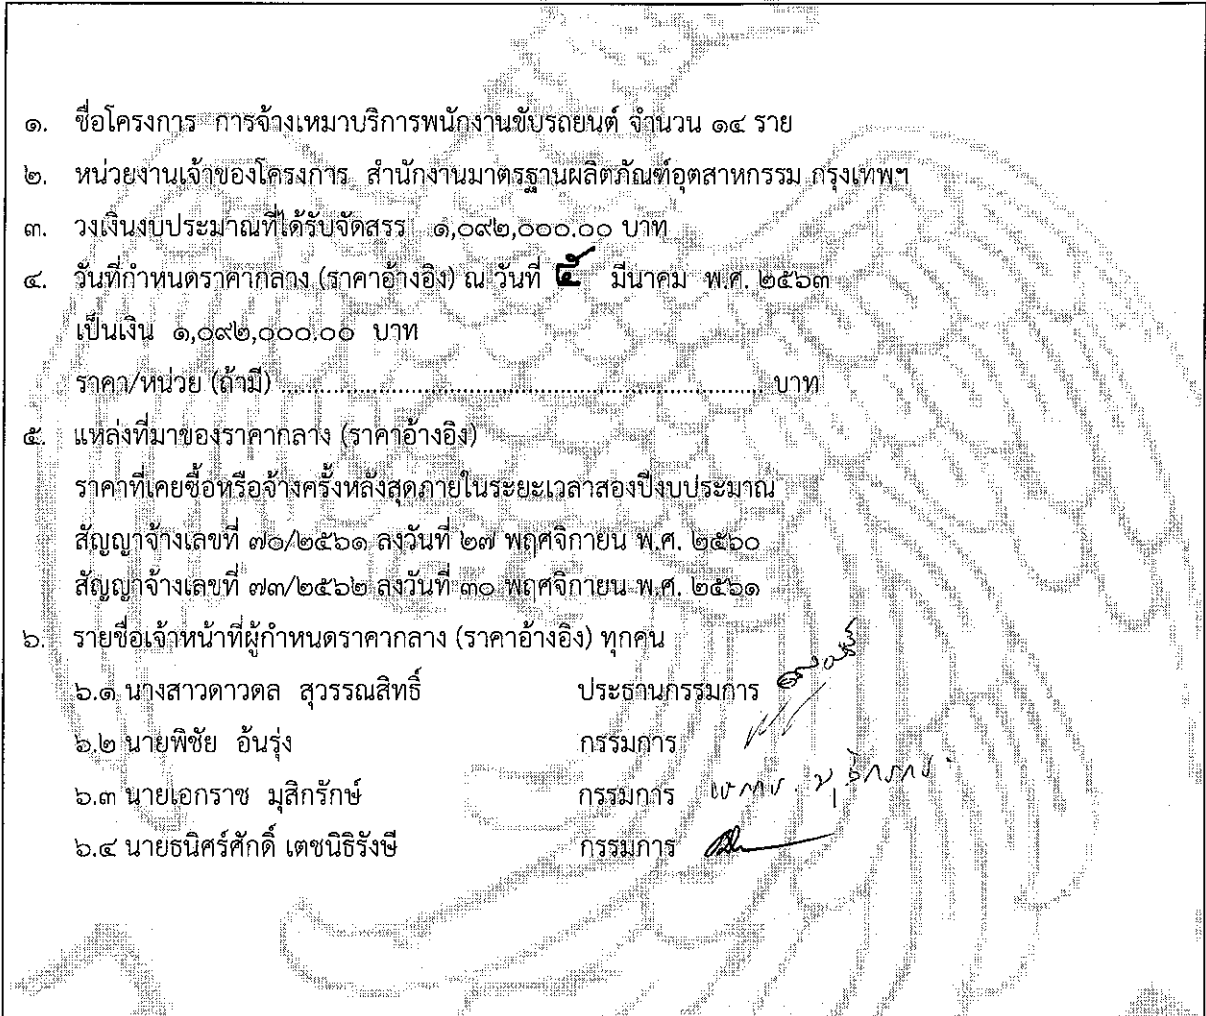 ๑. ชื่อโครงการ การจ้างเหมาบริการพนักงานขับรถยนต์ จำนวน ๑๔ ราย
๒. หน่วยงานเจ้าของโครงการ สำนักงานมาตรฐานผลิตภัณฑ์อุตสาหกรรม กรุงเทพฯ
๓. วงเงินงบประมาณที่ได้รับจัดสรร ๑,๐๙๒,๐๐๐.๐๐ บาท
๔. วันที่กำหนดราคากลาง (ราคาอ้างอิง) ณ วันที่ มีนาคม พ.ศ. ๒๕๖๓
เป็นเงิน ๑,๐๙๒,๐๐๐.๐๐ บาท
ราคา/หน่วย (ถ้ามี) .......................................................................... บาท
๕. แหล่งที่มาของราคากลาง (ราคาอ้างอิง)
ราคาที่เคยซื้อหรือจ้างครั้งหลังสุดภายในระยะเวลาสองปีงบประมาณ
สัญญาจ้างเลขที่ ๗๐/๒๕๖๑ ลงวันที่ ๒๗ พฤศจิกายน พ.ศ. ๒๕๖๐
สัญญาจ้างเลขที่ ๗๓/๒๕๖๒ ลงวันที่ ๓๐ พฤศจิกายน พ.ศ. ๒๕๖๑
๖. รายชื่อเจ้าหน้าที่ผู้กำหนดราคากลาง (ราคาอ้างอิง) ทุกคน
๖.๑ นางสาวดาวดล สุวรรณสิทธิ์ ประธานกรรมการ
๖.๒ นายพิชัย อ้นรุ่ง กรรมการ
๖.๓ นายเอกราช มุสิกรักษ์ กรรมการ
๖.๔ นายธนิศร์ศักดิ์ เตชนิธิรังษี กรรมการ